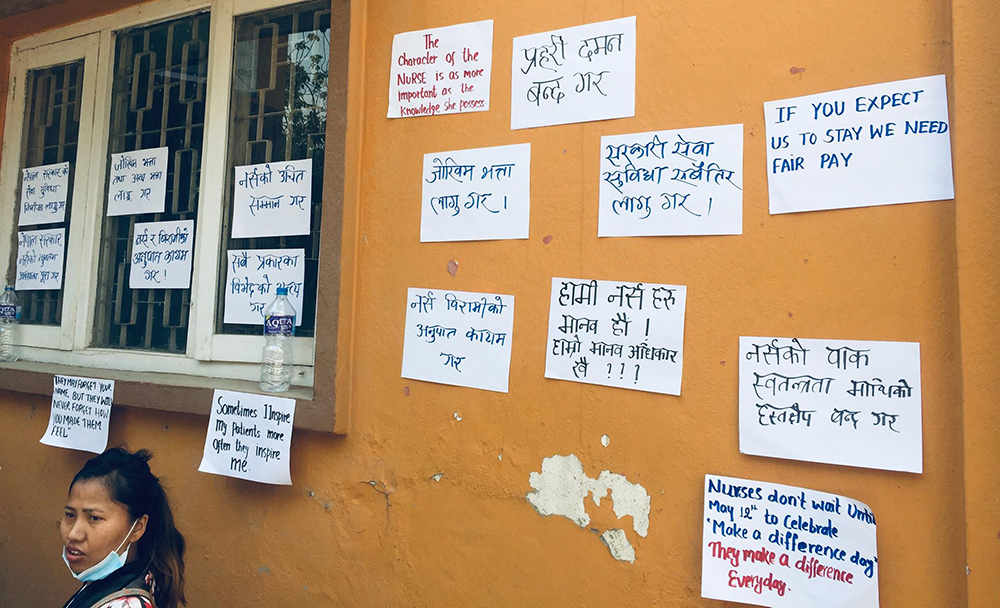 The
Character of the
NURSE is as more
important as the
Knowledge she possess.
प्रहरी दमन
बन्द गर
IF YOU EXPECT
US TO STAY WE NEED
FAIR PAY
जोखिम भत्ता
लागु गर ।
सरकारी सेवा
सुविधा
लागु गर ।
नेपाल सरकार को
सेवा सुविधा
लागु गर
जोखिम भत्ता
तथा अन्य भत्ता
लागू गर
नर्सको उचित
सम्मान गर
नेपाल सरकार
नर्सको
गर
नर्स र विरामीको
अनुपात कायम
गर !
सबै प्रकारका
विभेद को
गर
AQUA
नर्स विरामीको
अनुपात कायम
गर
हामी नर्स हरु
मानव हौं !
हाम्रो मानव अधिकार
ख्वै ? ? ?
नर्सको वाक
स्वतन्त्रता माथिको
हस्तक्षेप बन्द गर
THEY MAY FORGET YOUR
NAME, BUT THEY WILL
NEVER FORGET HOW
YOU MADE THEM
FEEL"
Sometimes I Inspire
My patients more
often they inspire
me.
Nurses don't wait Until
May 12th to celebrate
"Make a difference day"
They make a difference
Everyday.